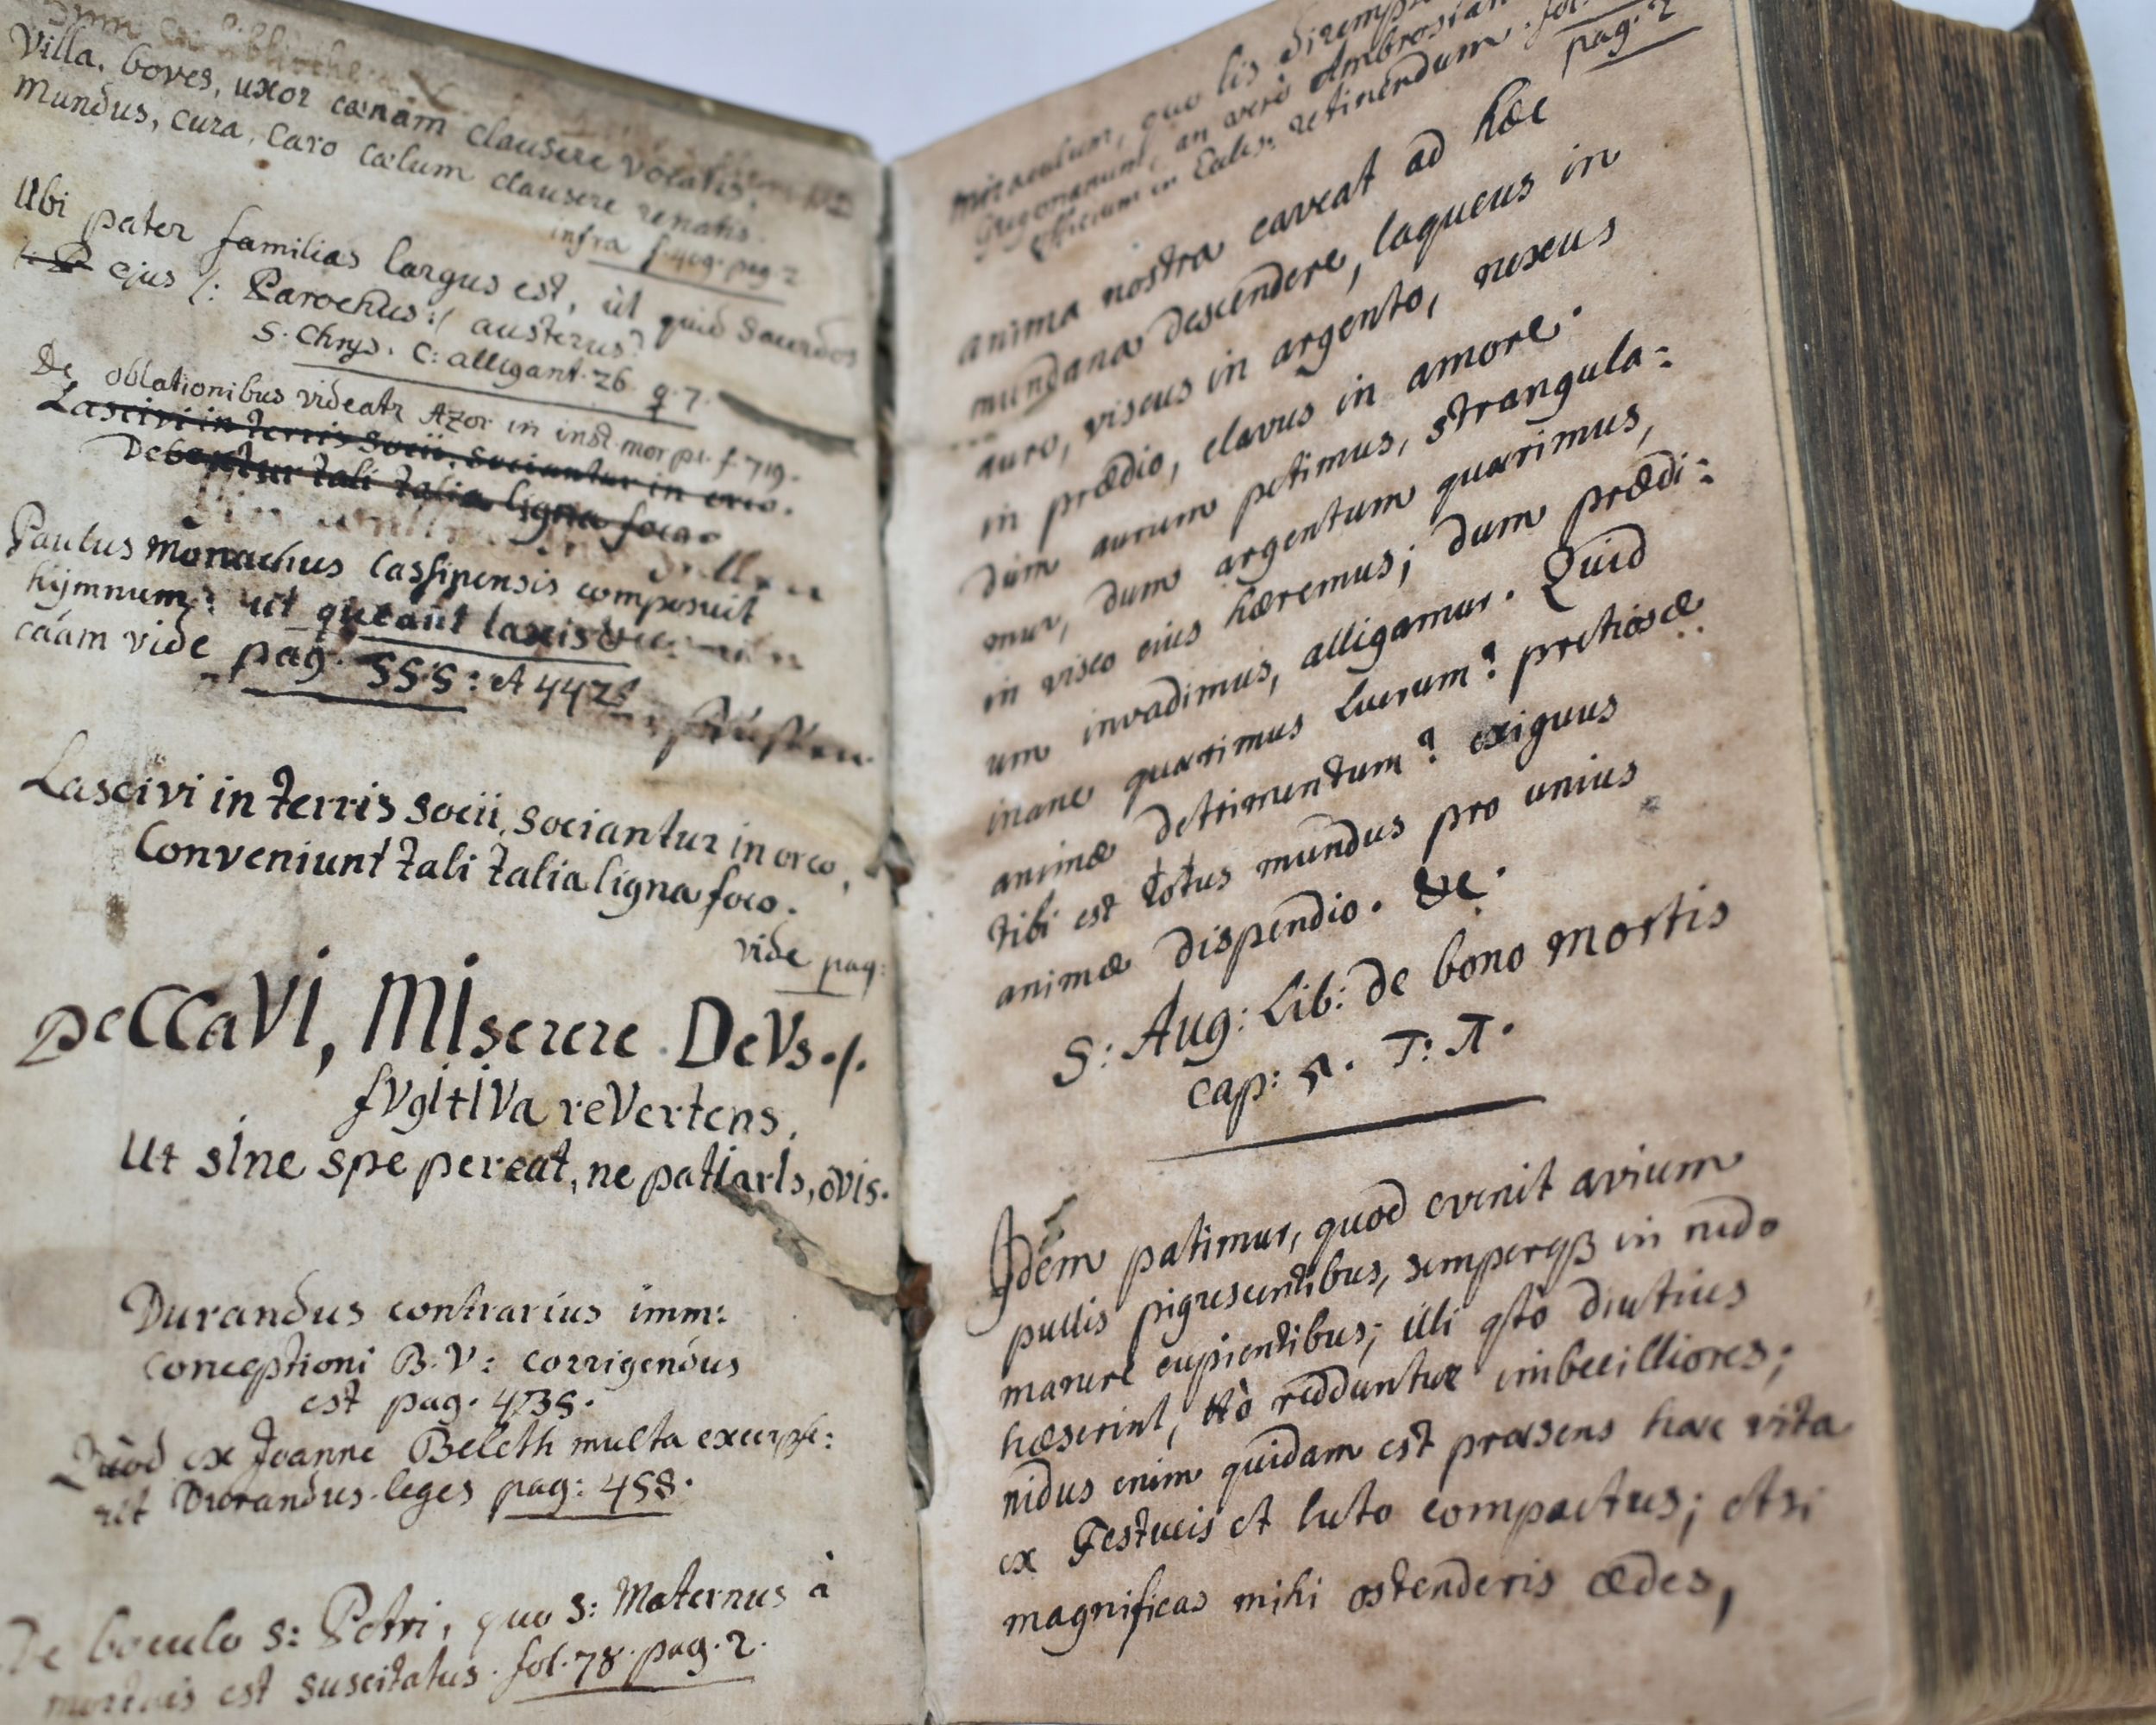 Villa, boves, uxor cœnam clausere vocatis,
Mundus, cura, caro cœlum clausere renatis.
infra f. 409. pag. 2
Ubi pater familias largus est, ut quid Sacerdos
ejus /: Parochus :/ austerus?
S. Chrys. C: alligant. 26 q. 7.
De oblationibus videatr Azor in inst. mor pt. f. 719.
Lascivi in terris Socii, Sociantur in orco.
tali talia ligna foco
Paulus Monachus Cassinensis composuit
hÿmnum: ut queant laxis
cáam vide pag. 555: et 442
Lascivi in terris Socii, Sociantur in orco,
Conveniunt tali talia ligna foco.
vide pag:
peCCaVI, MIserere DeVs./.
fVgItIVa reVertens,
Ut sIne spe pereat, ne patIarIs, oVIs.
Durandus contrarius imm:
conceptioni B. V: corrigendus
est pag. 4735.
Quòd ex Joanne Beleth multa excerpse:
rit Durandus leges pag: 458.
De baculo S: Petri, quo S: Maternus à
mortuis est suscitatus. fol. 78. pag. 2.
Miraculum, quo lis
an verò Ambrosian
Officium in Eccles: retinendum. fol.
pag. 2
anima nostra caveat ad hæc
mundana descendere, laqueus in
auro, viscus in argento, nexus
in prædio, clavus in amore.
dum aurum petimus, strangula:
mur, dum argentum quærimus,
in visco eius hæremus; dum prædi:
um invadimus, alligamur. Quid
inane quærimus Lucrum? pretiosæ
animæ detrimentum? exiguus
tibi est totus mundus pro unius
animæ dispendio. &c.
S: Aug: Lib: de bono mortis
cap: 5. T: 4.
Idem patimur, quod evenit avium
pullis pigrescentibus, semperqß in nido
manere cupientibus; illi qstò diutius
hæserint, ttò redduntur imbecilliores;
nidus enim quidam est præsens hæc vita
ex Festucis et luto compactus; etsi
magnificas mihi ostenderis ædes,